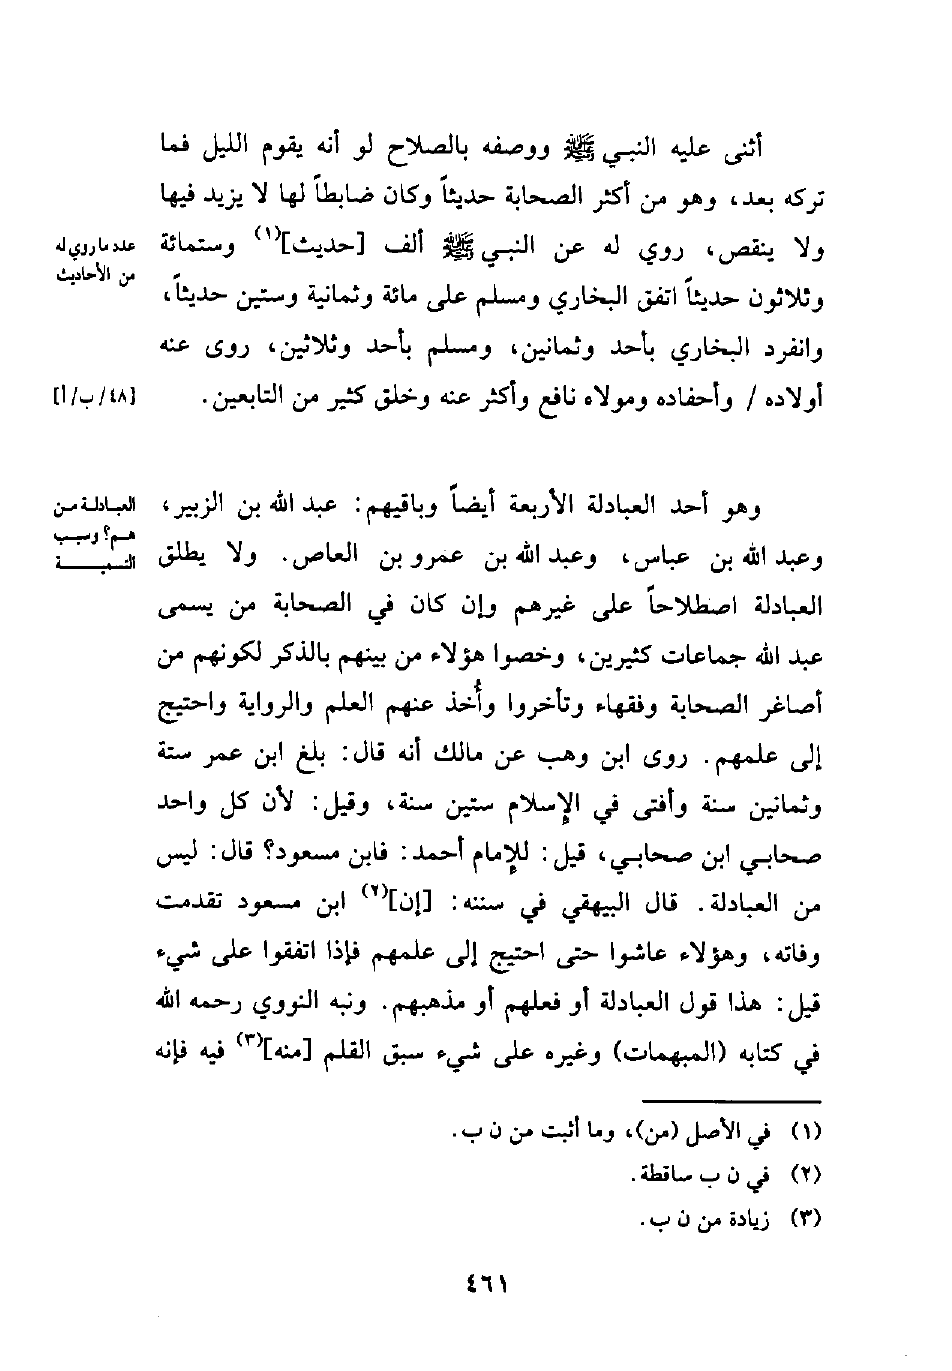 أثنى عليه النبي ﷺ ووصفه بالصلاح لو أنه يقوم الليل فما
تركه بعد، وهو من أكثر الصحابة حديثاً وكان ضابطاً لها لا يزيد فيها
ولا ينقص، روي له عن النبي ﷺ ألف [حديث](١) وستمائة
عدد ما روي له
من الأحاديث
وثلاثون حديثاً اتفق البخاري ومسلم على مائة وثمانية وستين حديثاً،
وانفرد البخاري بأحد وثمانين، ومسلم بأحد وثلاثين، روى عنه
أولاده / وأحفاده ومولاه نافع وأكثر عنه وخلق كثير من التابعين.
[٤٨/ب/أ]
وهو أحد العبادلة الأربعة أيضاً وباقيهم: عبد الله بن الزبير،
العبادلة من
هم؟ وسبب
التسمية
وعبد الله بن عباس، وعبد الله بن عمرو بن العاص. ولا يطلق
العبادلة اصطلاحاً على غيرهم وإن كان في الصحابة من يسمى
عبد الله جماعات كثيرين، وخصوا هؤلاء من بينهم بالذكر لكونهم من
أصاغر الصحابة وفقهاء وتأخروا وأُخذ عنهم العلم والرواية واحتيج
إلى علمهم. روى ابن وهب عن مالك أنه قال: بلغ ابن عمر ستة
وثمانين سنة وأفتى في الإسلام ستين سنة، وقيل: لأن كل واحد
صحابي ابن صحابي، قيل: للإمام أحمد: فابن مسعود؟ قال: ليس
من العبادلة. قال البيهقي في سننه: [إن](٢) ابن مسعود تقدمت
وفاته، وهؤلاء عاشوا حتى احتيج إلى علمهم فإذا اتفقوا على شيء
قيل: هذا قول العبادلة أو فعلهم أو مذهبهم. ونبه النووي رحمه الله
في كتابه (المبهمات) وغيره على شيء سبق القلم [منه](٣) فيه فإنه
(١) في الأصل (من)، وما أثبت من ن ب.
(٢) في ن ب ساقطة.
(٣) زيادة من ن ب.
٤٦١